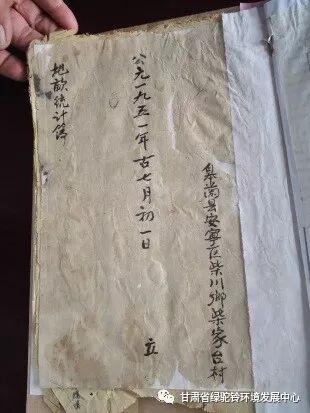 皋兰县安宁区柴川乡柴家台村
公元一九五一年古七月初一日
立
地亩统计簿
甘肃省绿驼铃环境发展中心